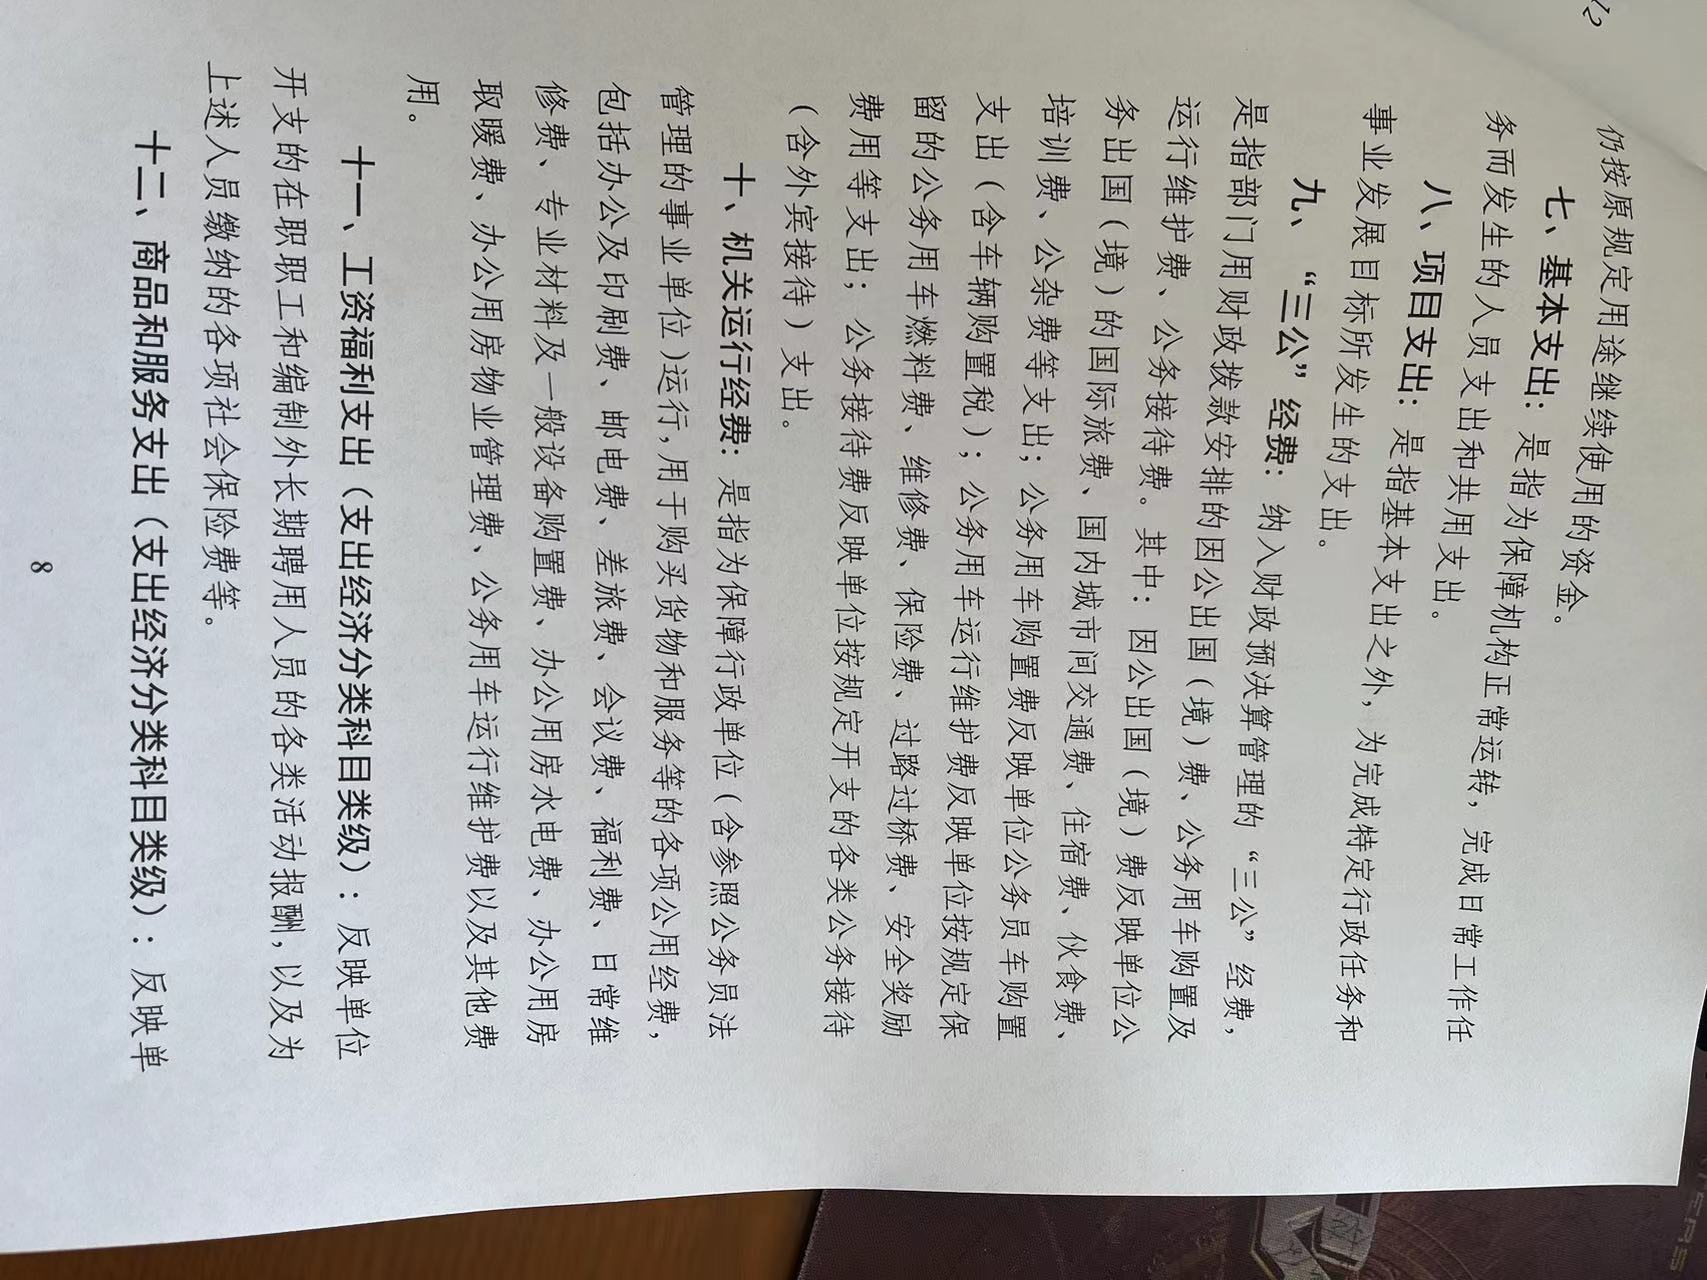 仍按原规定用途继续使用的资金。
七、基本支出：是指为保障机构正常运转，完成日常工作任
务而发生的人员支出和共用支出。
八、项目支出：是指基本支出之外，为完成特定行政任务和
事业发展目标所发生的支出。
九、“三公”经费：纳入财政预决算管理的“三公”经费，
是指部门用财政拨款安排的因公出国（境）费、公务用车购置及
运行维护费、公务接待费。其中：因公出国（境）费反映单位公
务出国（境）的国际旅费、国内城市间交通费、住宿费、伙食费、
培训费、公杂费等支出；公务用车购置费反映单位公务员车购置
支出（含车辆购置税）；公务用车运行维护费反映单位按规定保
留的公务用车燃料费、维修费、保险费、过路过桥费、安全奖励
费用等支出；公务接待费反映单位按规定开支的各类公务接待
（含外宾接待）支出。
十、机关运行经费：是指为保障行政单位（含参照公务员法
管理的事业单位)运行,用于购买货物和服务等的各项公用经费,
包括办公及印刷费、邮电费、差旅费、会议费、福利费、日常维
修费、专业材料及一般设备购置费、办公用房水电费、办公用房
取暖费、办公用房物业管理费、公务用车运行维护费以及其他费
用。
十一、工资福利支出（支出经济分类科目类级）：反映单位
开支的在职职工和编制外长期聘用人员的各类活动报酬，以及为
上述人员缴纳的各项社会保险费等。
十二、商品和服务支出（支出经济分类科目类级）：反映单
8